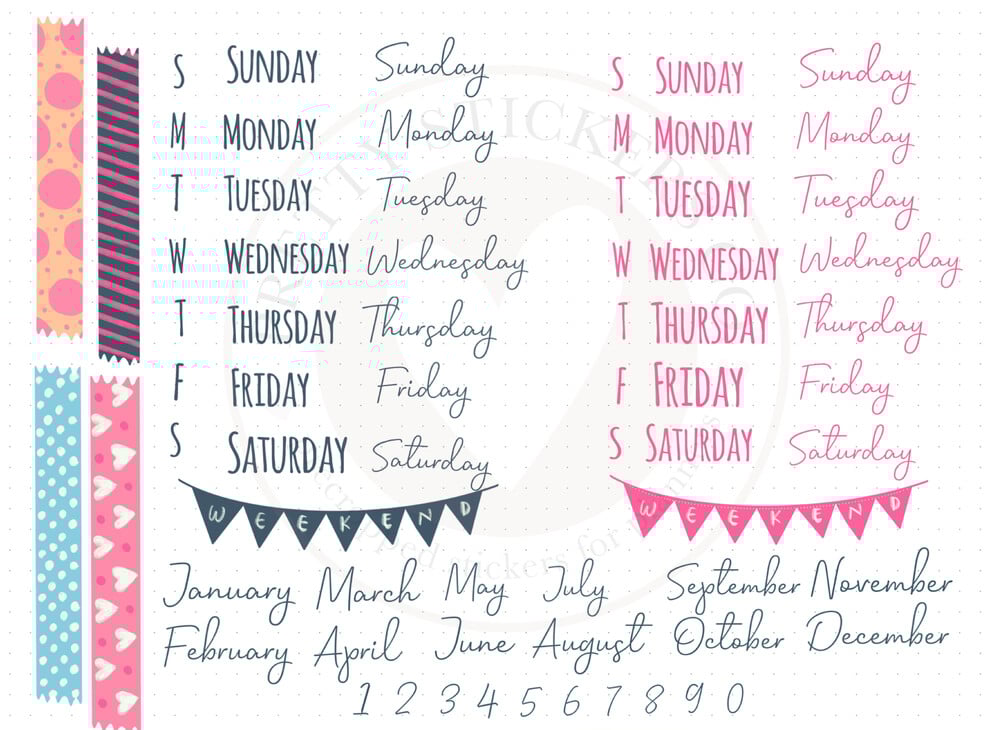 S SUNDAY Sunday S SUNDAY Sunday
M MONDAY Monday M MONDAY Monday
T TUESDAY Tuesday T TUESDAY Tuesday
W WEDNESDAY Wednesday W WEDNESDAY Wednesday
T THURSDAY Thursday T THURSDAY Thursday
F FRIDAY Friday F FRIDAY Friday
S SATURDAY Saturday S SATURDAY Saturday
WEEKEND WEEKEND
January March May July September November
February April June August October December
1 2 3 4 5 6 7 8 9 0
stickers for